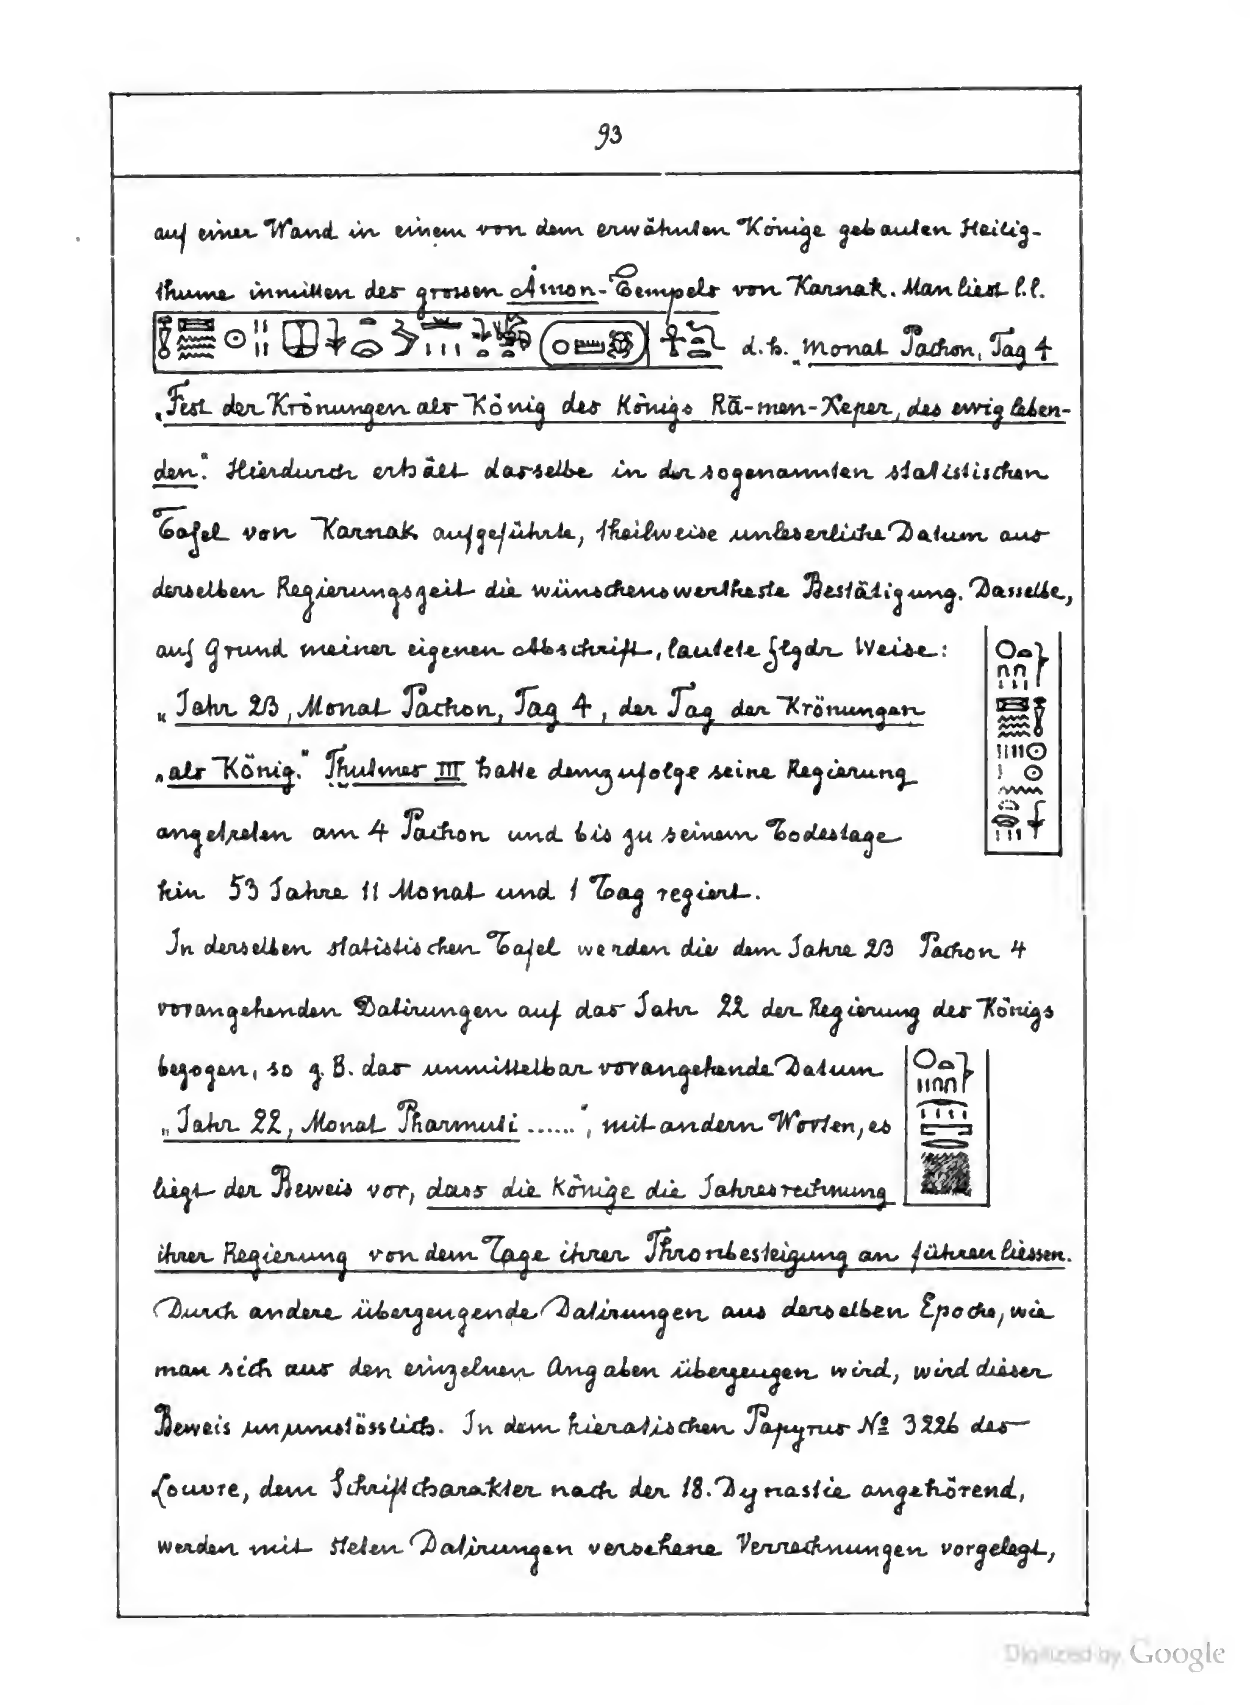 93
auf einer Wand in einem von dem erwähnten Könige gebauten Heilig-
thume inmitten des grossen Amon-Tempels von Karnak. Man liest l.l.
d.h. „Monat Pachon, Tag 4
„Fest der Krönungen als König des Königs Rā-men-Xeper, des ewig leben-
den“. Hierdurch erhält dasselbe in der sogenannten statistischen
Tafel von Karnak aufgeführte, theilweise unleserliche Datum aus
derselben Regierungszeit die wünschenswertheste Bestätigung. Dasselbe,
auf Grund meiner eigenen Abschrift, lautete flgdr Weise:
„Jahr 23, Monat Pachon, Tag 4, der Tag der Krönungen
„als König.“ Thutmes III hatte demzufolge seine Regierung
angetreten am 4 Pachon und bis zu seinem Todestage
hin 53 Jahre 11 Monat und 1 Tag regiert.
In derselben statistischen Tafel werden die dem Jahre 23 Pachon 4
vorangehenden Datirungen auf das Jahr 22 der Regierung des Königs
bezogen, so z.B. das unmittelbar vorangehende Datum
„Jahr 22, Monat Pharmuti ......“, mit andern Worten, es
liegt der Beweis vor, dass die Könige die Jahresrechnung
ihrer Regierung von dem Tage ihrer Thronbesteigung an führen liessen.
Durch andere überzeugende Datirungen aus derselben Epoche, wie
man sich aus den einzelnen Angaben überzeugen wird, wird dieser
Beweis unumstösslich. In dem hieratischen Papyrus № 3226 des
Louvre, dem Schriftcharakter nach der 18. Dynastie angehörend,
werden mit steten Datirungen versehene Verrechnungen vorgelegt,
Digitized by Google